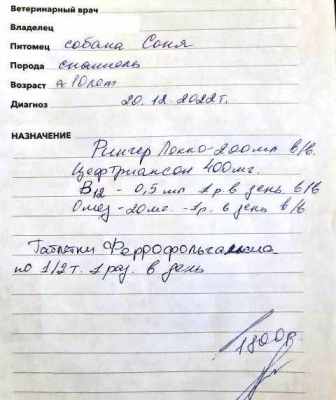 Ветеринарный врач
Владелец
Питомец собака Соня
Порода спаниель
Возраст 10 лет
Диагноз 20.12.2022г.
НАЗНАЧЕНИЕ
Рингер Локко-200мл в/в.
Цефтриансон 400мг.
В12 - 0,5 мл 1 р. в день в/в
Омез-20мг. -1р. в день в/в
Таблетки
по 1/2 т. 1 раз. в день